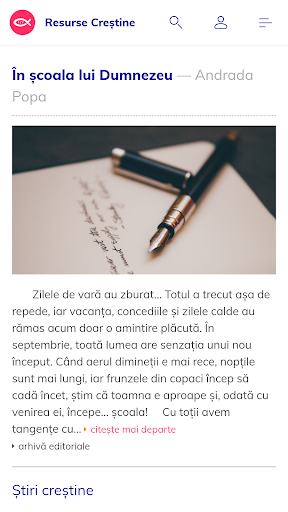 Resurse Creștine
În școala lui Dumnezeu — Andrada
Popa
Zilele de vară au zburat... Totul a trecut așa de
repede, iar vacanța, concediile și zilele calde au
rămas acum doar o amintire plăcută. În
septembrie, toată lumea are senzația unui nou
început. Când aerul dimineții e mai rece, nopțile
sunt mai lungi, iar frunzele din copaci încep să
cadă încet, știm că toamna e aproape și, odată cu
venirea ei, începe... școala! Cu toții avem
tangențe cu... citește mai departe
arhivă editoriale
Știri creștine